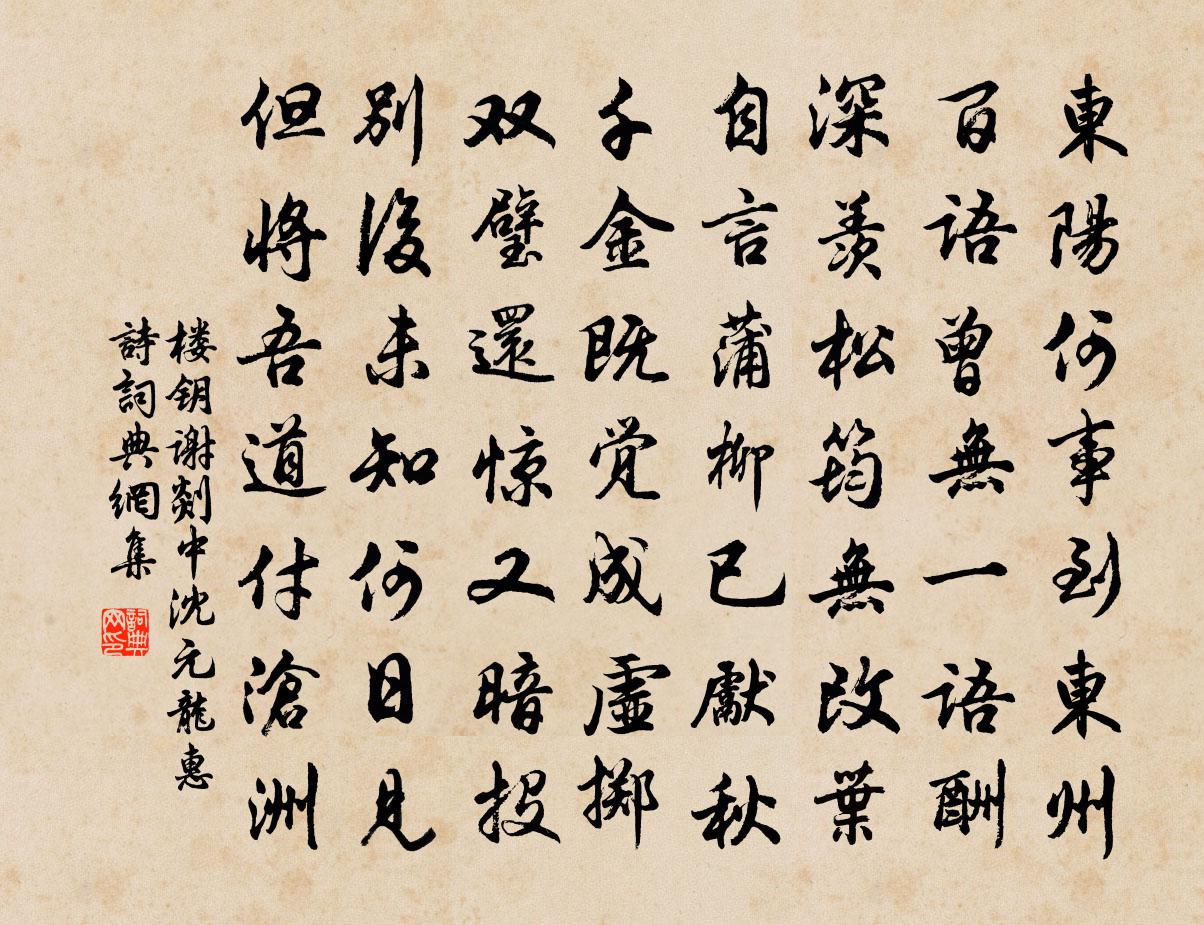 東陽何事到東州
百語曾無一語酬
深羨松筠無改葉
自言蒲柳已獻秋
千金既觉成虛掷
双璧還惊又暗投
别後未知何日見
但將吾道付滄洲
楼钥谢剡中沈元龍惠
詩詞典網集
詞典网印